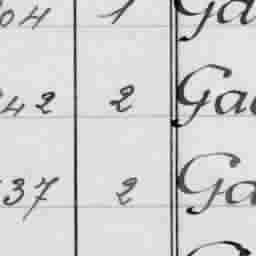 04 1 Ga
42 2 Ga
37 2 Ga